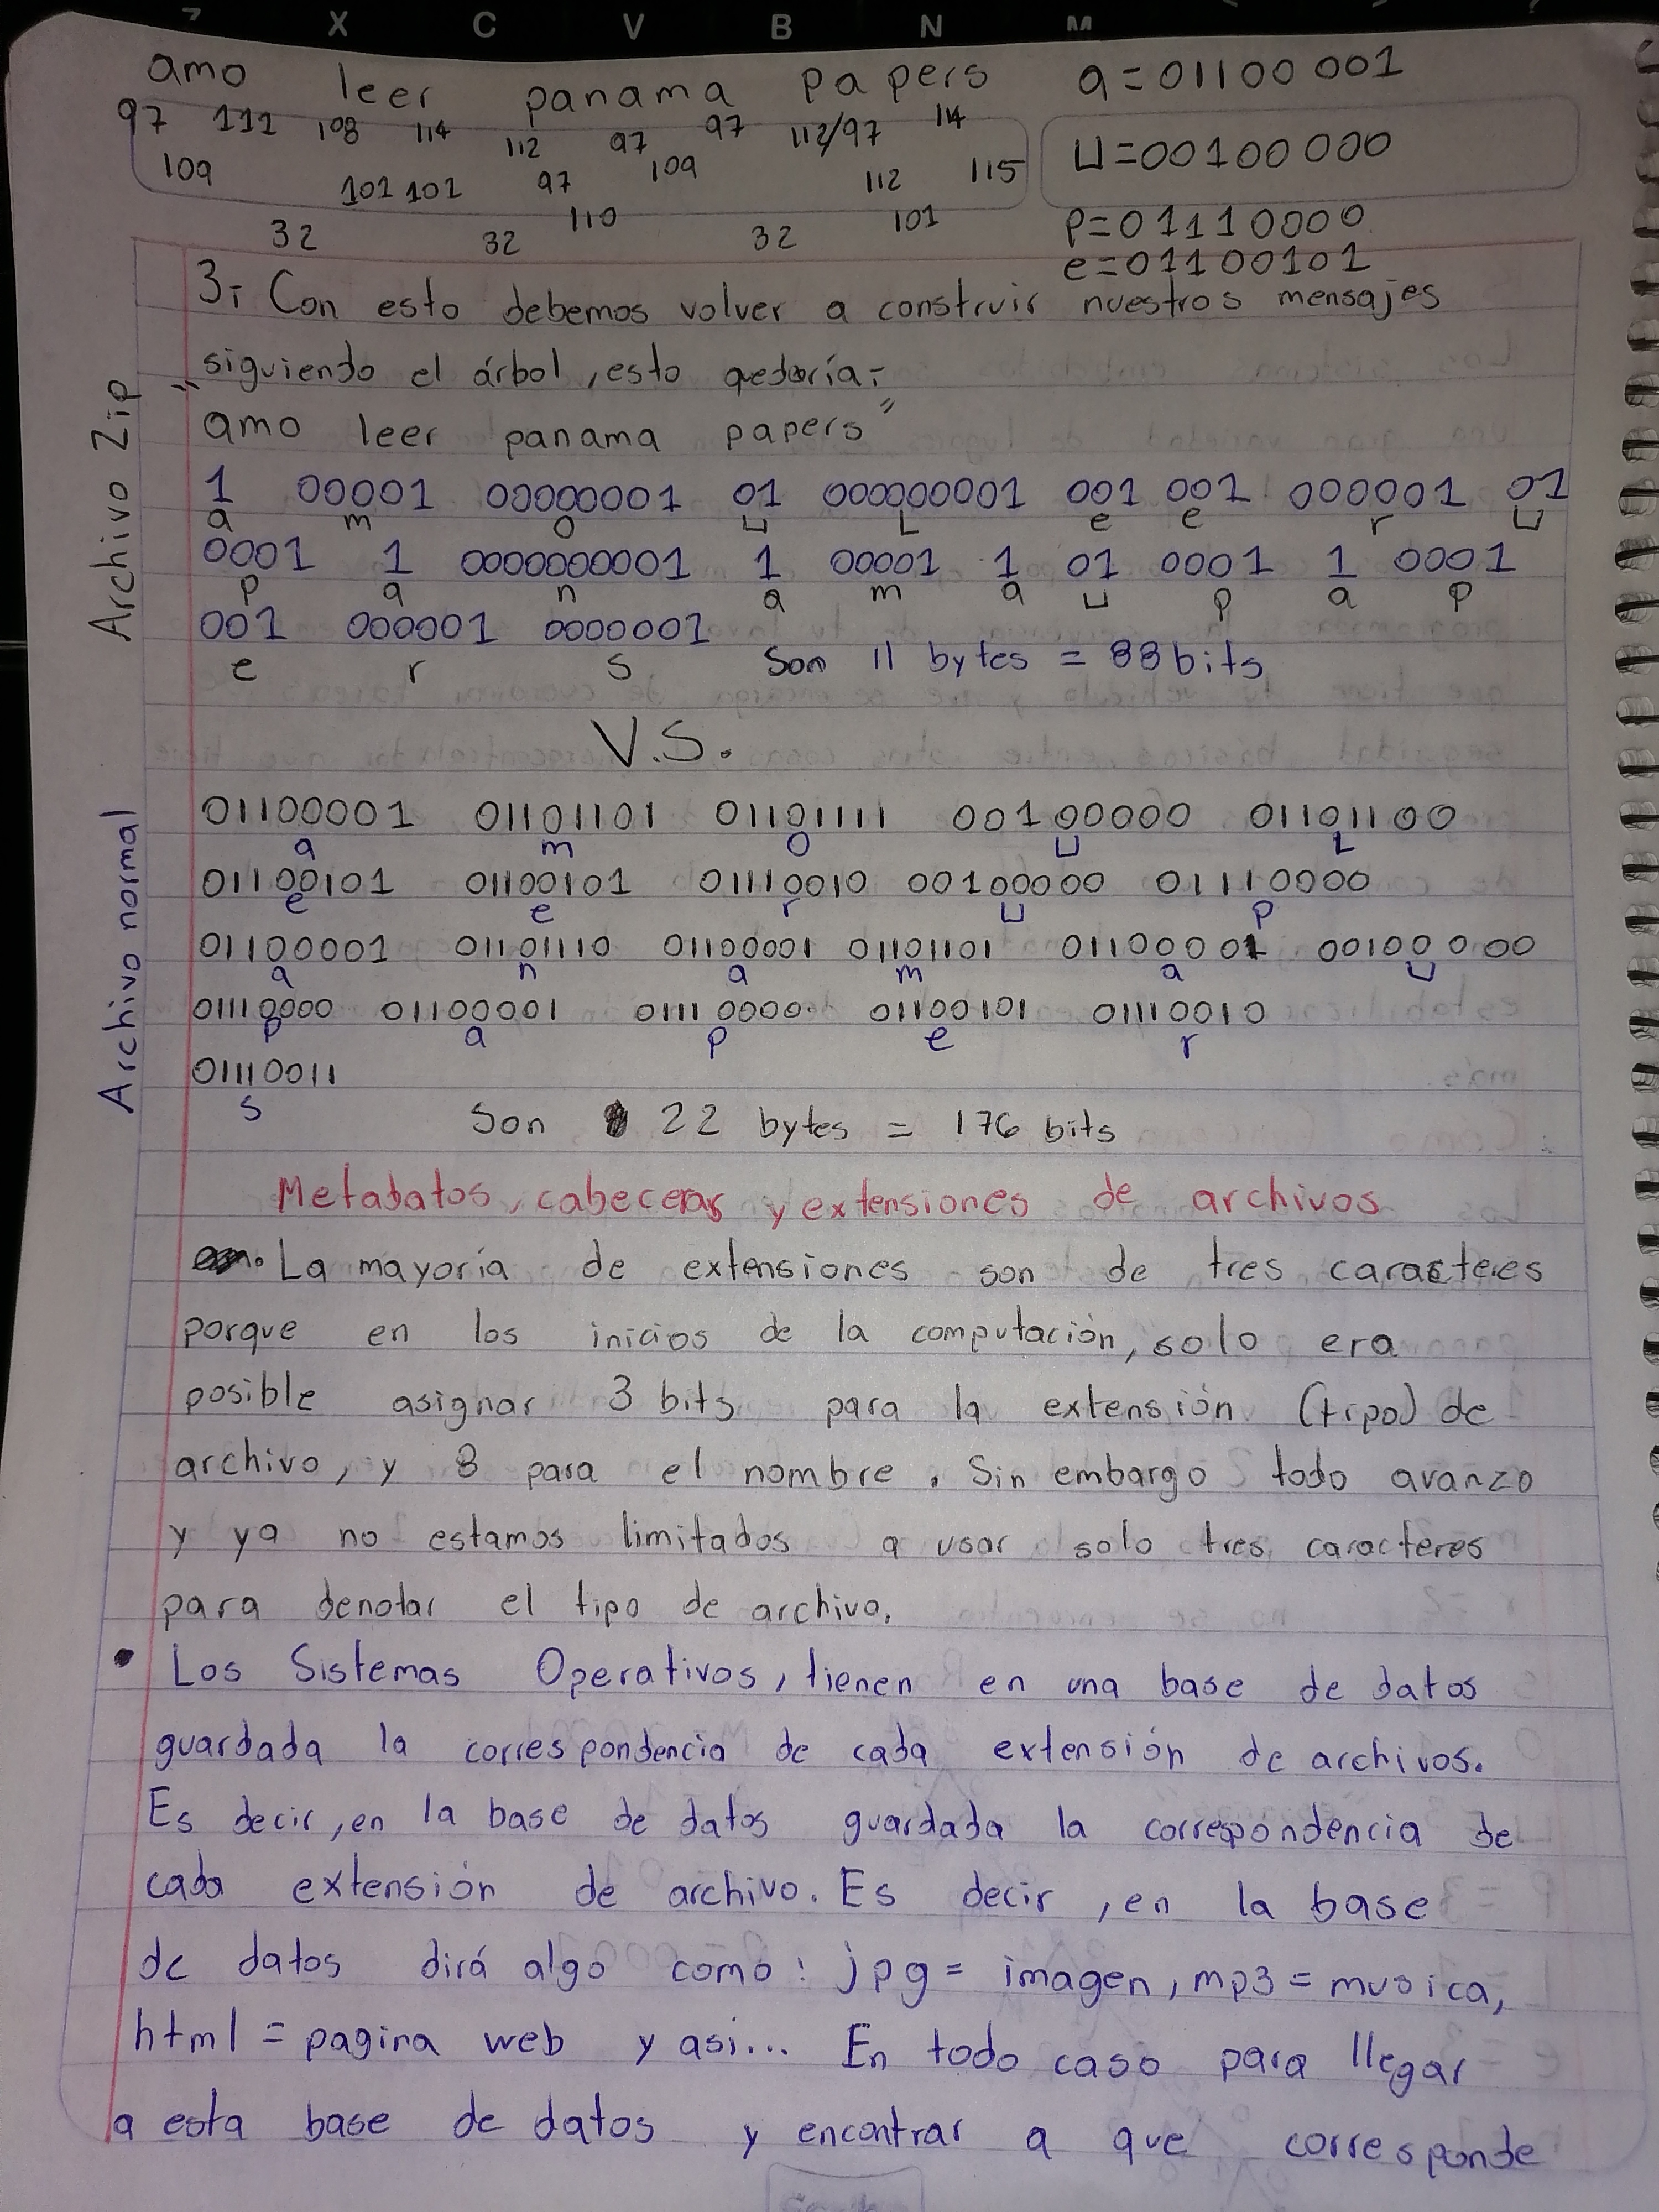 Z X C V B N M
amo leer panama papers a=01100001
97 111 108 114 112 97 97 112/97 114
109 101 101 97 109 112 115 ⊔=00100000
32 32 110 32 101 p=01110000
e=01100101
3.- Con esto debemos volver a construir nuestros mensajes
siguiendo el árbol, esto qedaría:
"amo leer panama papers"
Archivo Zip
1 00001 00000001 01 000000001 001 001 000001 01
a m o ⊔ L e e r ⊔
0001 1 0000000001 1 00001 1 01 0001 1 0001
p a n a m a ⊔ p a p
001 000001 0000001
e r s Son 11 bytes = 88 bits
V.S.
Archivo normal
01100001 01101101 01101111 00100000 01101100
a m o ⊔ L
01100101 01100101 01110010 00100000 01110000
e e r ⊔ p
01100001 01101110 01100001 01101101 01100001 00100000
a n a m a ⊔
01110000 01100001 01110000 01100101 01110010
p a p e r
01110011
s Son 22 bytes = 176 bits
Metadatos, cabeceras y extensiones de archivos
. La mayoría de extensiones son de tres caracteres
porque en los inicios de la computación, solo era
posible asignar 3 bits para la extensión (tipo) de
archivo, y 8 para el nombre. Sin embargo todo avanzo
y ya no estamos limitados a usar solo tres caracteres
para denotar el tipo de archivo.
• Los Sistemas Operativos, tienen en una base de datos
guardada la correspondencia de cada extensión de archivos.
Es decir, en la base de datos guardada la correspondencia de
cada extensión de archivo. Es decir, en la base
de datos dirá algo como: jpg = imagen, mp3 = musica,
html = pagina web y asi... En todo caso para llegar
a esta base de datos y encontrar a que corresponde